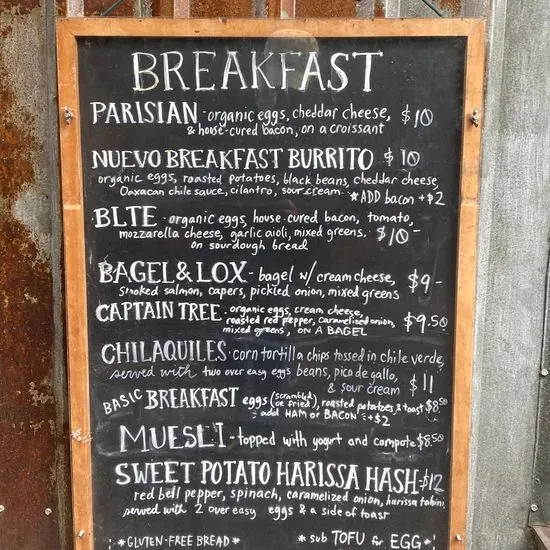 BREAKFAST
PARISIAN - organic eggs, cheddar cheese, $10
& house-cured bacon, on a croissant
NUEVO BREAKFAST BURRITO $10
organic eggs, roasted potatoes, black beans, cheddar cheese,
Oaxacan chile sauce, cilantro, sour cream *ADD bacon +$2
BLTE - organic eggs, house-cured bacon, tomato,
mozzarella cheese, garlic aioli, mixed greens. $10-
on sourdough bread
BAGEL & LOX - bagel w/ cream cheese, $9-
smoked salmon, capers, pickled onion, mixed greens
CAPTAIN TREE - organic eggs, cream cheese, $9.50
roasted red pepper, caramelized onion,
mixed greens, ON A BAGEL
CHILAQUILES - corn tortilla chips tossed in chile verde,
served with two over easy eggs beans, pico de gallo,
& sour cream $11
BASIC BREAKFAST eggs (scrambled or fried), roasted potatoes & toast $8.50
add HAM or BACON +$2
MUESLI - topped with yogurt and compote $8.50
SWEET POTATO HARISSA HASH - $12
red bell pepper, spinach, caramelized onion, harissa tahini
served with 2 over easy eggs & a side of toast
*GLUTEN-FREE BREAD* *sub TOFU for EGG*